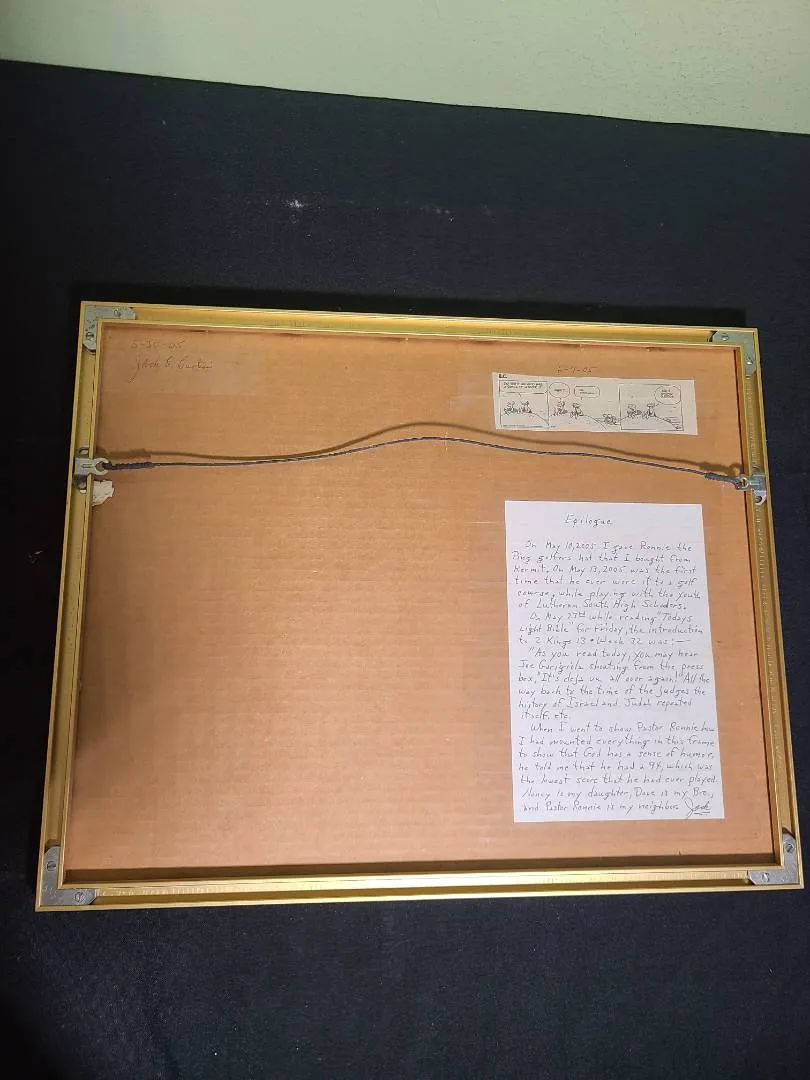 5-28-05
Jack E.
6-7-05
B.C.
Epilogue
On May 10, 2005 I gave Ronnie the
Ping golfers hat that I bought from
Kermit. On May 13, 2005 was the first
time that he ever wore it to a golf
course, while playing with the youth
of Lutheran South High Schoolers.
On May 27th while reading "Todays
Light Bible" for Friday, the introduction
to 2 Kings 13 • Week 32 was:—
"As you read today, you may hear
Joe Garigiola shouting from the press
box, "It's deja vu all over again!" All the
way back to the time of the judges the
history of Israel and Judah repeated
itself, etc.
When I went to show Pastor Ronnie how
I had mounted everything in this frame
to show that God has a sense of humor,
he told me that he had a 94, which was
the lowest score that he had ever played.
Nancy is my daughter, Dave is my Bro.,
and Pastor Ronnie is my neighbor. Jack